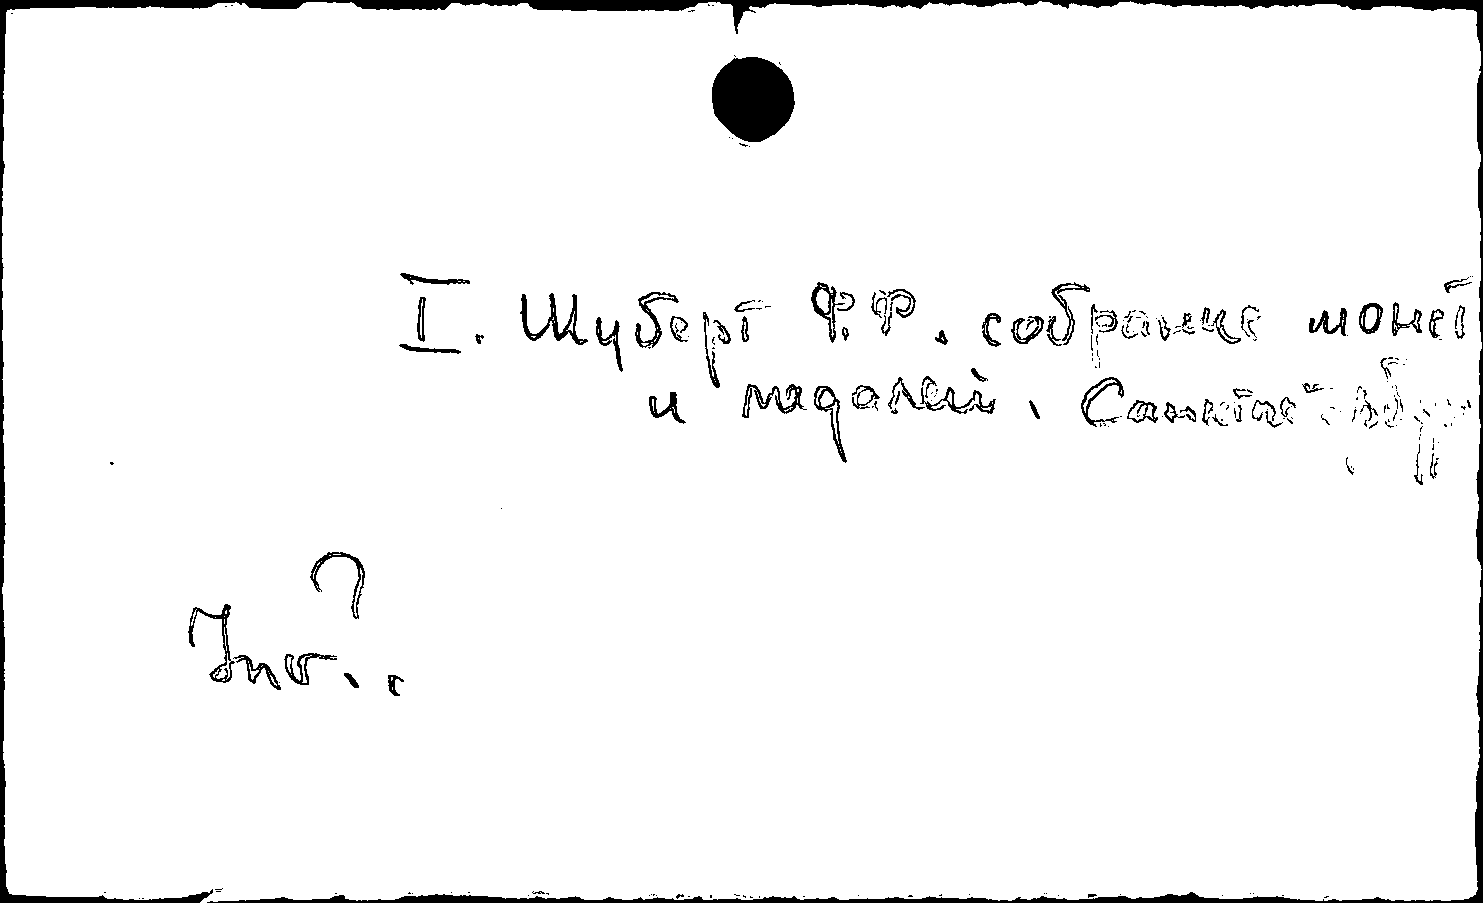 I. Шуберт Ф.Ф. собрание монет
и медалей. Санктпетербург
?
Inv..